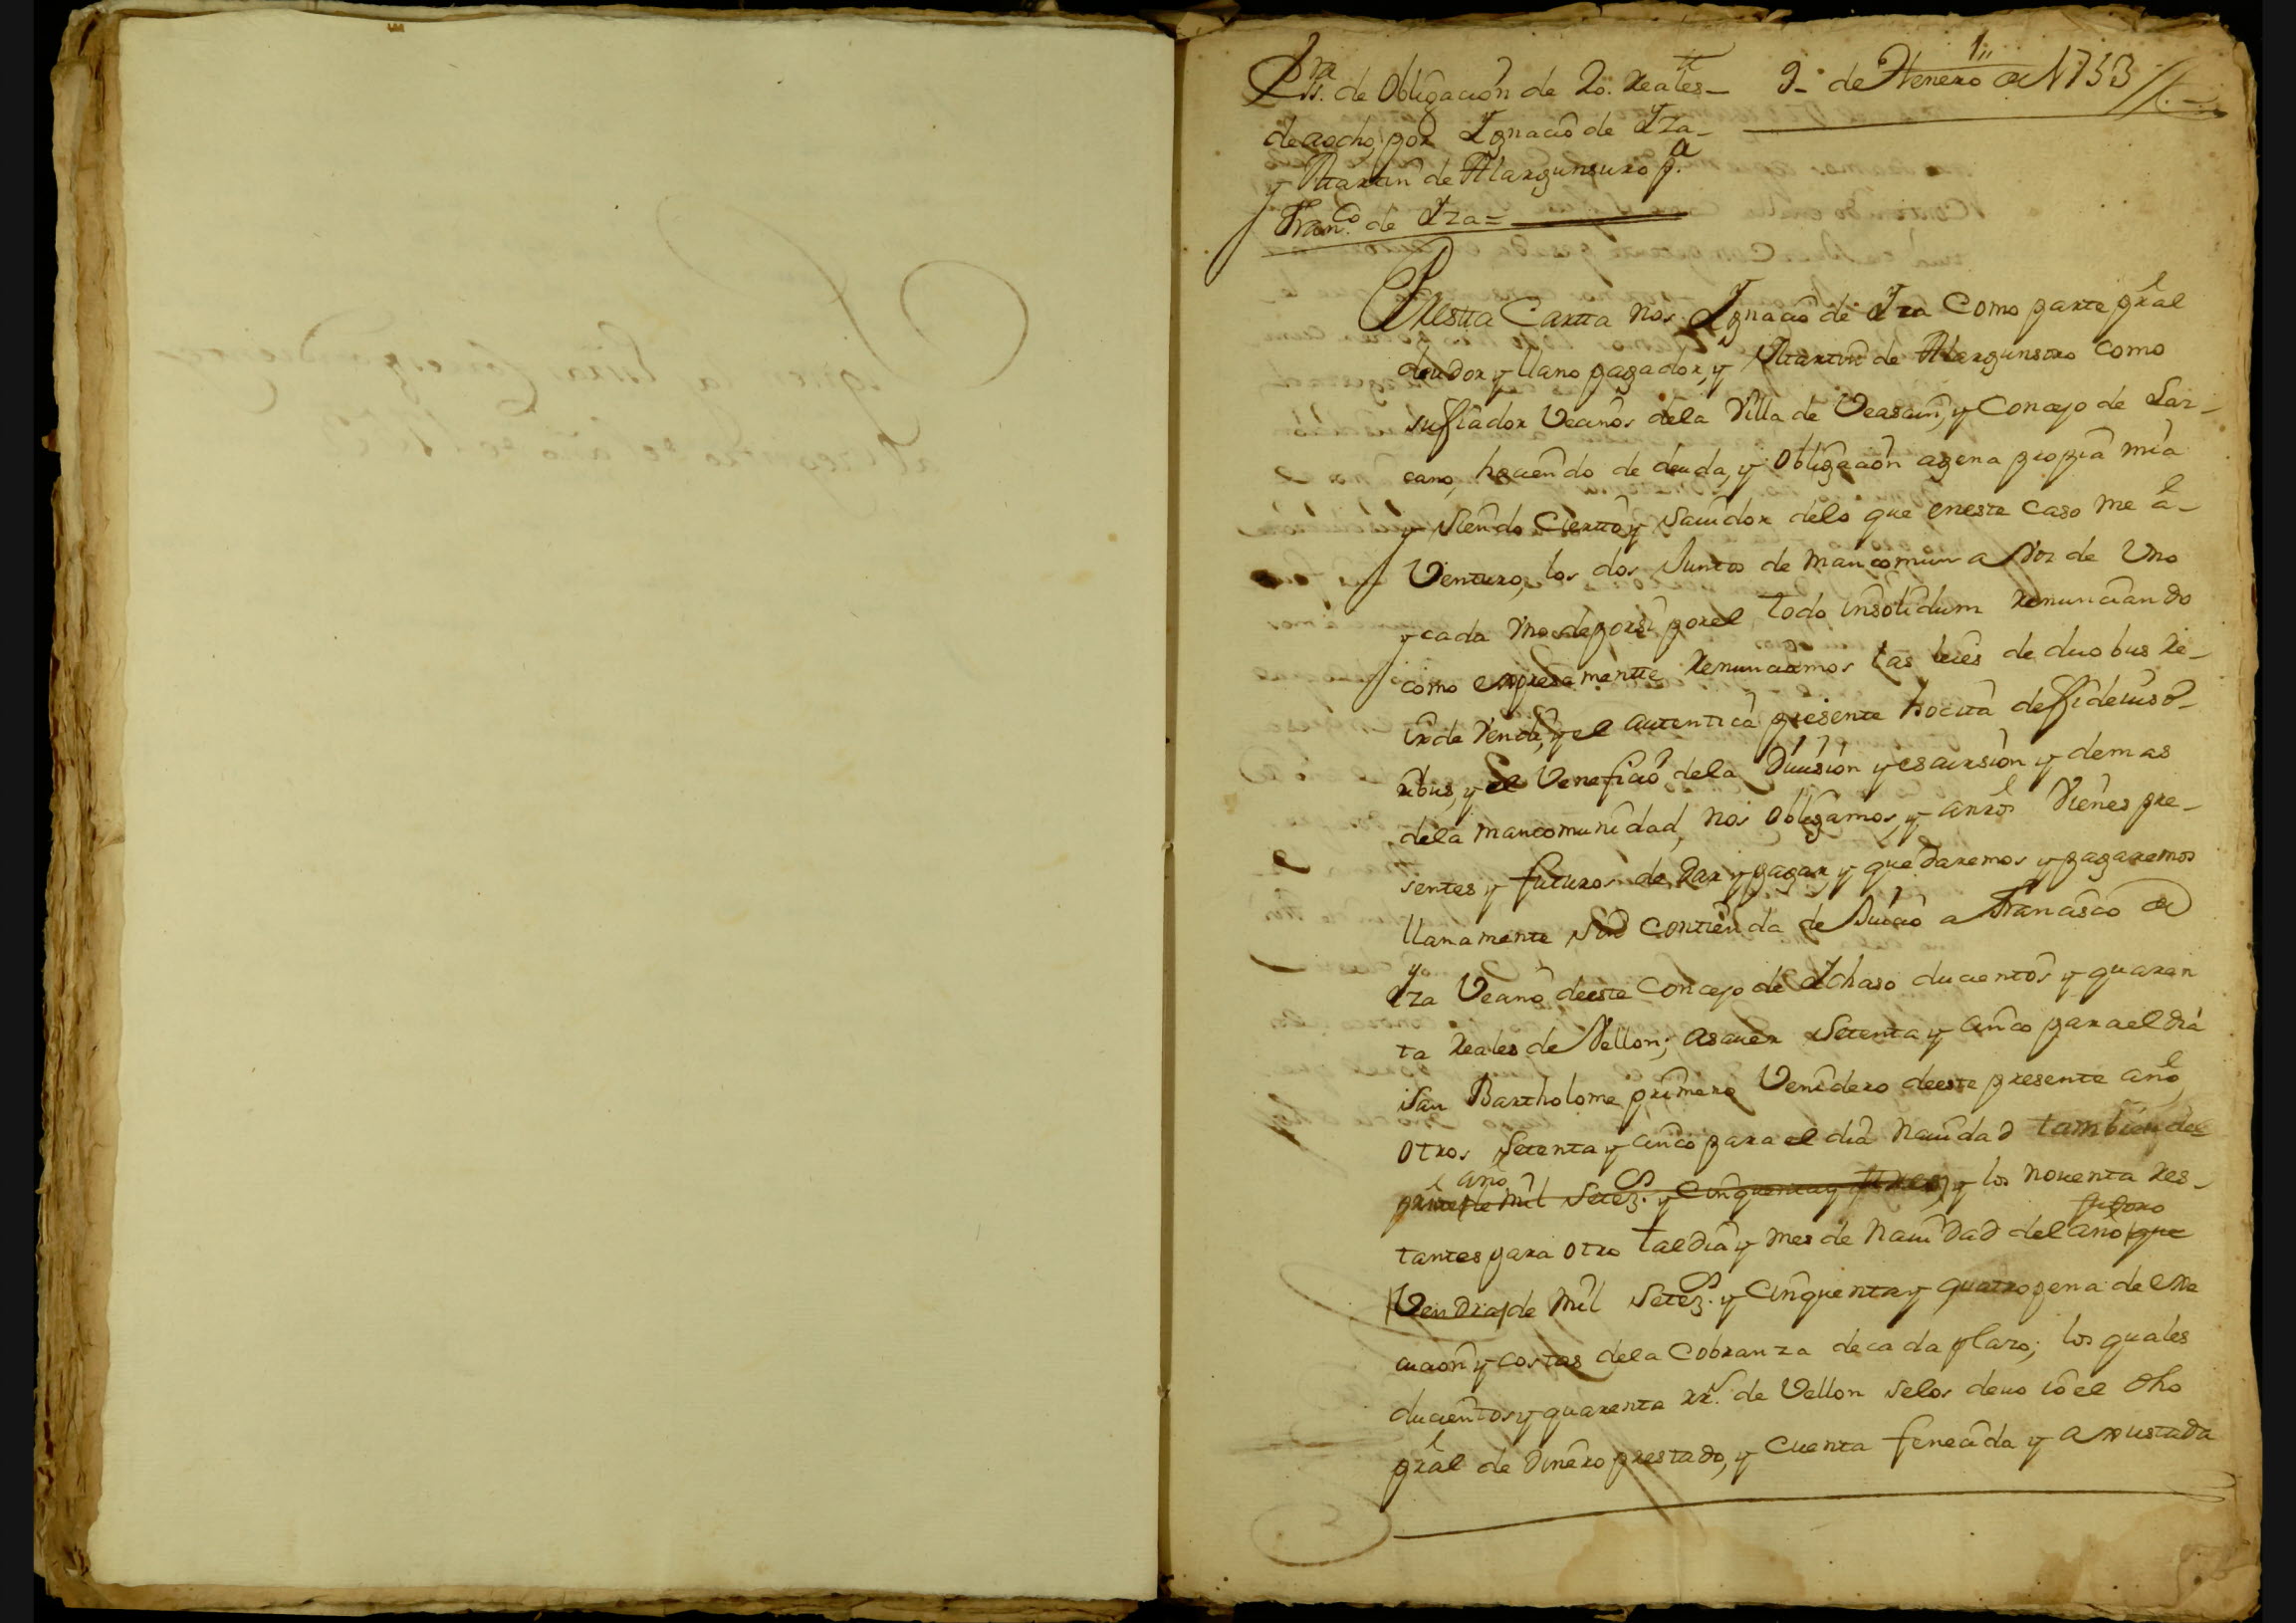 1
Ess.ra de Obligacion de 20. Reales 9 de Henero de 1753
de a ocho, por Ygnacio de Yza
y Martin de Alargunsoro p.a
Fran.co de Yza =
Por esta Cartta nos Ygnacio de Yza Como parte pral
deudor y llano pagador, y Martin de Alargunsoro como
su fiador Vecinos dela Villa de Veasain, y Concejo de Laz-
cano, haciendo de deuda, y Obligacion agena propia mia
y siendo Cierto y Sauidor delo que en este caso me a-
Venturo, los dos Juntos de mancomun a Voz de Uno
y cada Uno de por si por el todo insolidum renunciando
como expresamente Renunciamos las leies de duobus Re-
ex de Vendi, y el autentica presente hocita de ffideiuso-
ribus, y el Veneficio dela Diuision y escursion y demas
dela mancomunidad, nos Obligamos, y a nros Vienes pre-
sentes y futuros de Dar y pagar, y que Daremos y pagaremos
llanamente sin contienda de Juicio a Francisco de
Yza Vecino de este Concejo de Ychaso ducientos y quaren
ta Reales de Vellon; asauer Setenta y cinco para el dia
San Bartholome primero Venidero de este presente año,
otros Setenta y cinco para el dia Nauidad tambien de
año
mil Setez.s y Cinquenta y tres, y los nouenta res-
futuro
tantes para otro tal dia y mes de Nauidad del año que
Vendra de mil Setez.s y Cinquenta y quatro pena de exe
cucion y costas dela Cobranza de cada plazo; los quales
ducientos y quarenta rr.s de Vellon se los deuo io el dho
pral de Dinero prestado, y cuenta fenecida y axustada